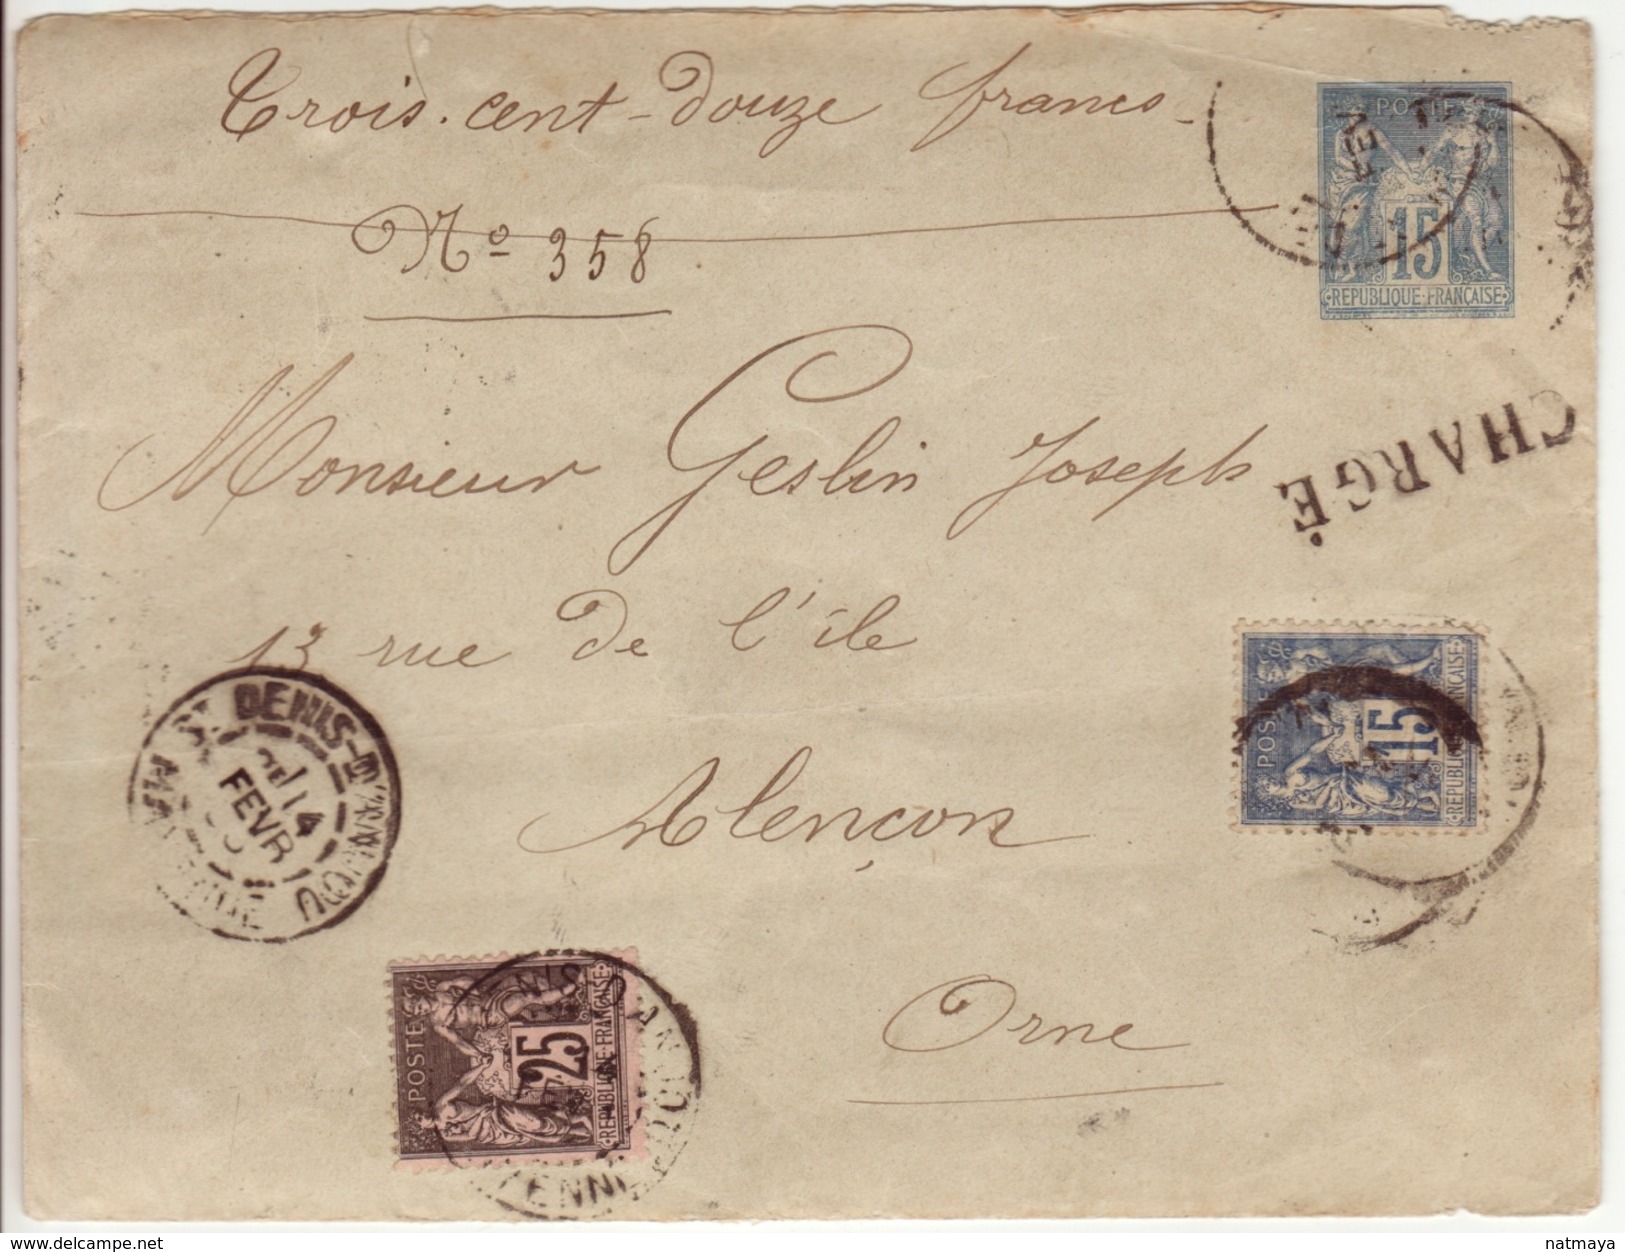 Trois. cent-douze francs-
Nº 358
POSTES
15
REPUBLIQUE·FRANÇAISE
CHARGÉ
Monsieur Geslin Joseph
13 rue de l'île
Alençon
Orne
POSTES
15
REPUBLIQUE·FRANÇAISE
ST DENIS-D'ANJOU
14
FEVR
MAYENNE
POSTES
25
REPUBLIQUE·FRANÇAISE
delcampe.net
natmaya